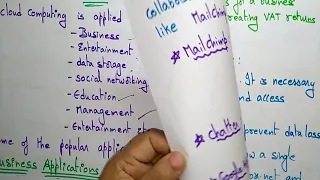 cloud computing is applied
- Business
- Entertainment
- data storage
- social networking
- Education
- Management
- Entertainment
me of the popular applic
Business Applications
collabora
like Mailchim
* Mailchimp
* chatter
s for a business
creating VAT returns
. It is necessary
and access
prevent data loss
w a single